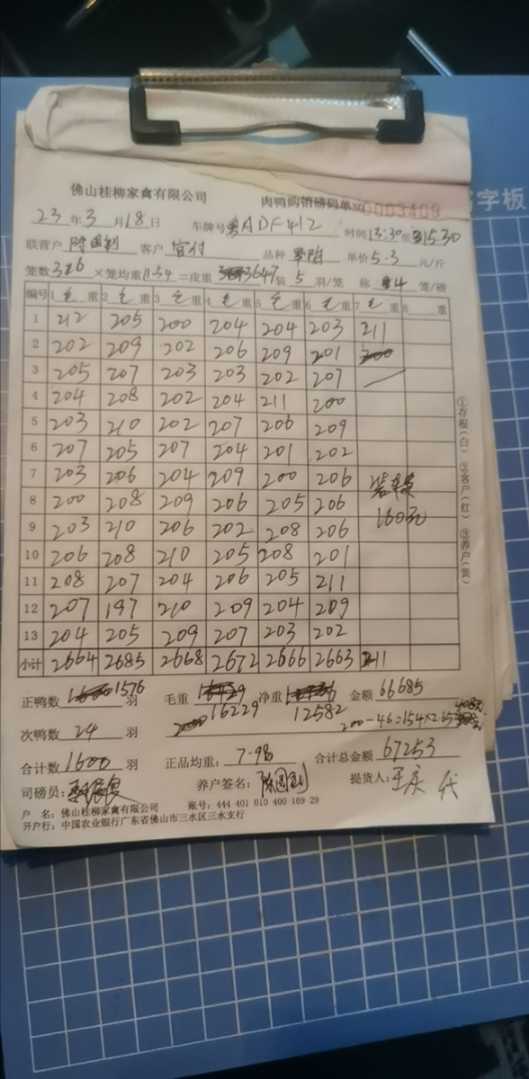 字板
佛山桂柳家禽有限公司 肉鸭购销磅码单 0003409
23年3月18日 车牌号 粤ADF412 时间13:30至 15:30
联营户 客户 品种 单价5.3元/斤
笼数 ×笼均重11.54=皮重 3647 装5羽/笼 称 4笼/磅
编号 1毛重 2毛重 3毛重 4毛重 5毛重 6毛重 7毛重 8 重
1 212 205 200 204 204 203 211
2 202 209 202 206 209 201 200
3 205 207 203 203 202 207
4 204 208 202 204 211 200
5 203 210 202 207 206 209
6 207 205 207 204 201 202
7 203 206 204 209 200 206
8 200 208 209 206 205 206
9 203 210 206 202 208 206 160元
10 206 208 210 205 208 201
11 208 207 204 206 205 211
12 207 197 210 209 204 209
13 204 205 209 207 203 202
小计 2664 2685 2668 2672 2666 2663 211
①存根(白) ②客户(红) ③养户(黄)
正鸭数 1576羽 毛重 16229 净重 12582 金额 66685
次鸭数 24羽 200-46=154×
合计数 1600羽 正品均重: 7.98 合计总金额 67253
司磅员: 养户签名: 提货人: 代
户 名: 佛山桂柳家禽有限公司 账号: 444 401 010 400 169 29
开户行: 中国农业银行广东省佛山市三水区三水支行